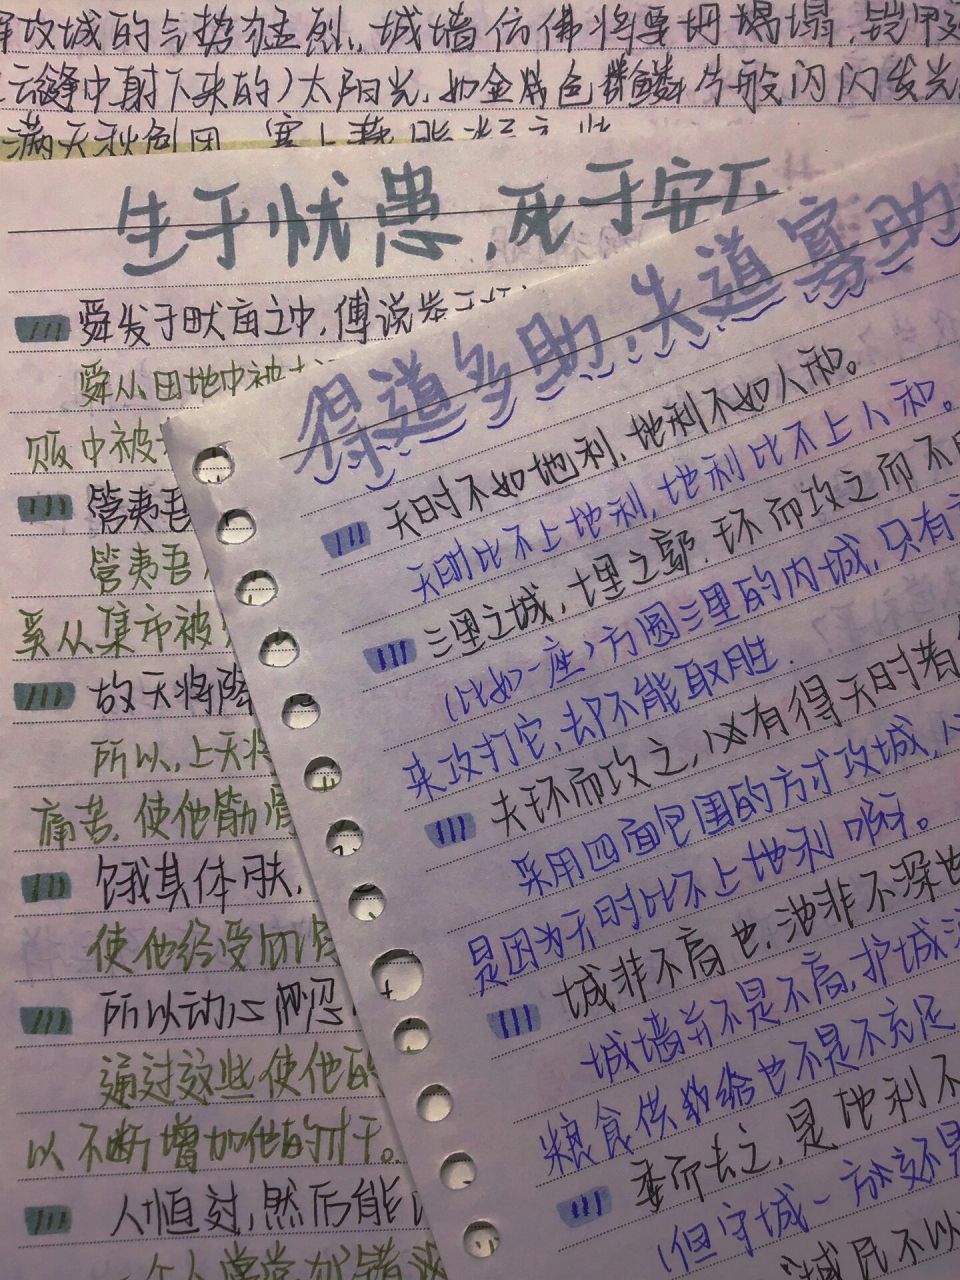 攻城的气势猛烈,城墙仿佛将要坍塌,铠甲
云缝中射下来的)太阳光,如金
片般闪闪发光
满天秋
生于忧患,死于安
舜发于畎亩之中,傅说举于
舜从田地中被
贩中被
管夷吾
管夷吾
奚从集市被
故天将降
所以,上天将
痛苦,使他筋骨
饿其体肤,
使他经受饥
所以动心
通过这些使他的
以不断增加他的才干。
人恒过,然后能
一个人常常犯错误
得道多助,失道寡助
天时不如地利,地利不如人和。
天时比不上地利,地利比不上人和。
三里之城,七里之郭,环而攻之而不
(比如一座)方圆三里的内城,只有
来攻打它,却不能取胜.
夫环而攻之,必有得天时者
采用四面包围的方式攻城,
是因为天时比不上地利呀。
城非不高也,池非不深也
城墙并不是不高,护城
粮食供给也不是不充足
委而去之,是地利不
(但守城一方还是
城民不以